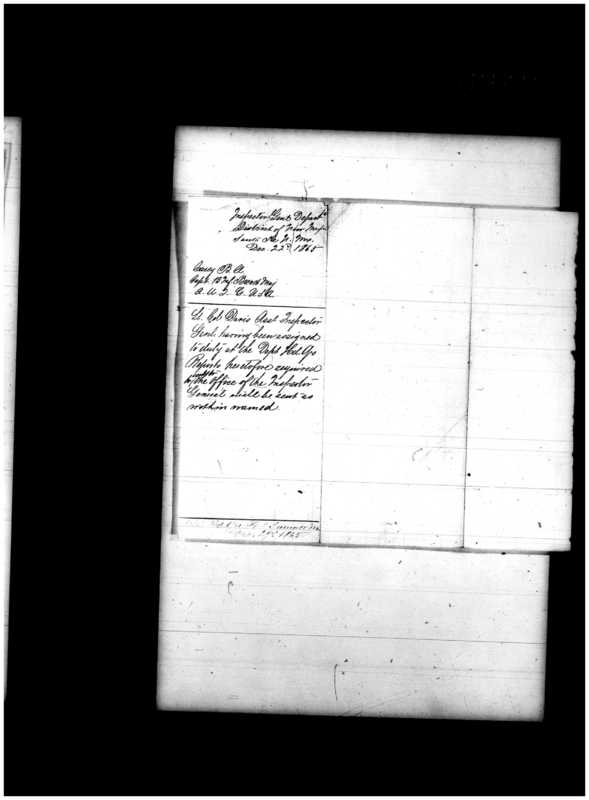 Inspector Genl's Depart
District of New Mex
Santa Fe N. Mo.
Dec. 22d 1865
Casey B. A
Capt. 15 Inf Brevt Maj
A. U. S. C. USA
Lt Col Davis Asst Inspector
Genl. having been assigned
to duty at the Dept Hd. Qrs
Reports heretofore required
by the Office of the Inspector
General will be sent as
within named
Dec. 1865